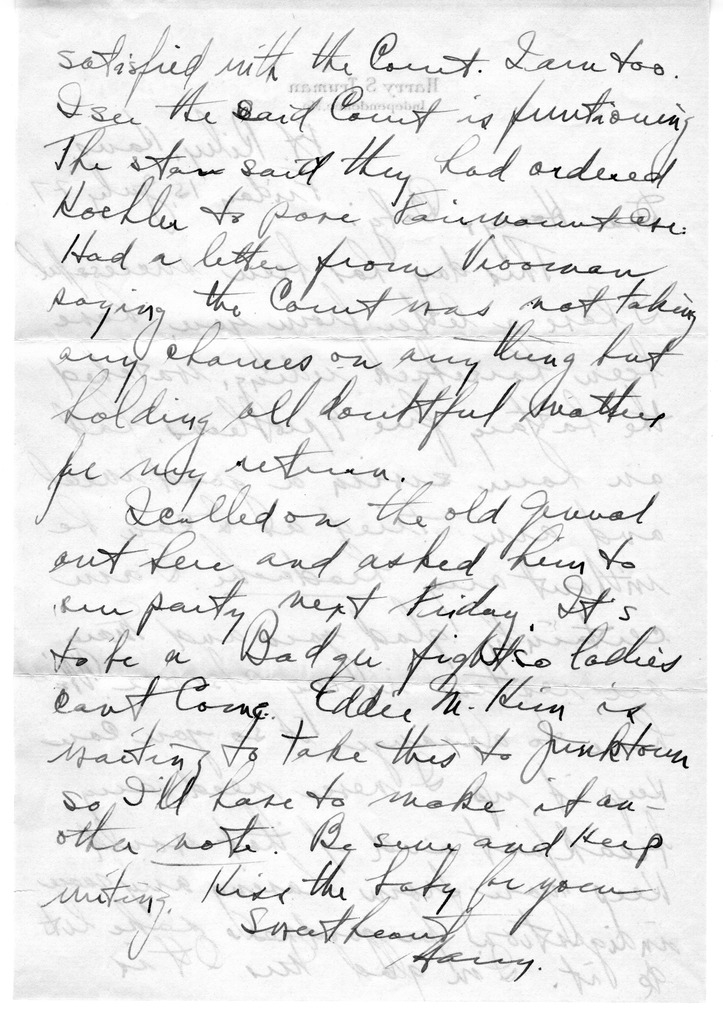 satisfied with the Court. I am too.
Harry S. Truman
Independence, Mo.
I see the said Court is funtioning
The Star said they had ordered
Koehler to pave Fairmount Ave.
Had a letter from Vrooman
saying the Court was not taking
any chances on anything but
holding all doubtful matters
for my return.
I called on the old General
out here and asked him to
our party next Friday. It's
to be a Badger fight so ladies
cant Come. Eddie McKim is
waiting to take this to Junktown
so I'll have to make it an-
other note. Be sure and keep
writing. Kiss the baby for your
Sweetheart
Harry.